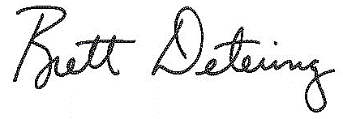 Brett Detering